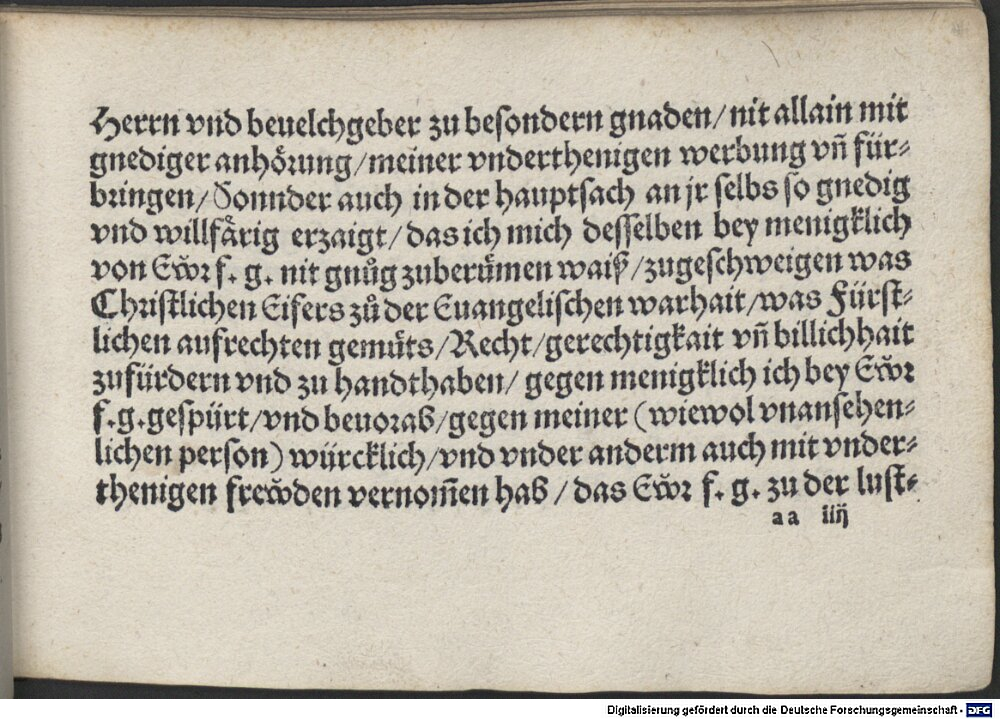 Herrn vnd beuelchgeber zu besondern gnaden/ nit allain mit
gnediger anhörung/ meiner vnderthenigen werbung vn̄ für⸗
bringen/ Sonnder auch in der hauptsach an jr selbs so gnedig
vnd willfårig erzaigt/ das ich mich desselben bey menigklich
von Ewr f. g. nit gnůg zuberůmen waiß/ zugeschweigen was
Christlichen Eifers zů der Euangelischen warhait/ was Fürst⸗
lichen aufrechten gemůts/ Recht/ gerechtigkait vn̄ billichhait
zufürdern vnd zu handthaben/ gegen menigklich ich bey Ewr
f. g. gespürt/ vnd beuorab/ gegen meiner (wiewol vnansehen⸗
lichen person) würcklich/ vnd vnder anderm auch mit vnder⸗
thenigen frewden vernom̄en hab/ das Ewr f. g. zu der lust⸗
aa iiij
Digitalisierung gefördert durch die Deutsche Forschungsgemeinschaft - DFG